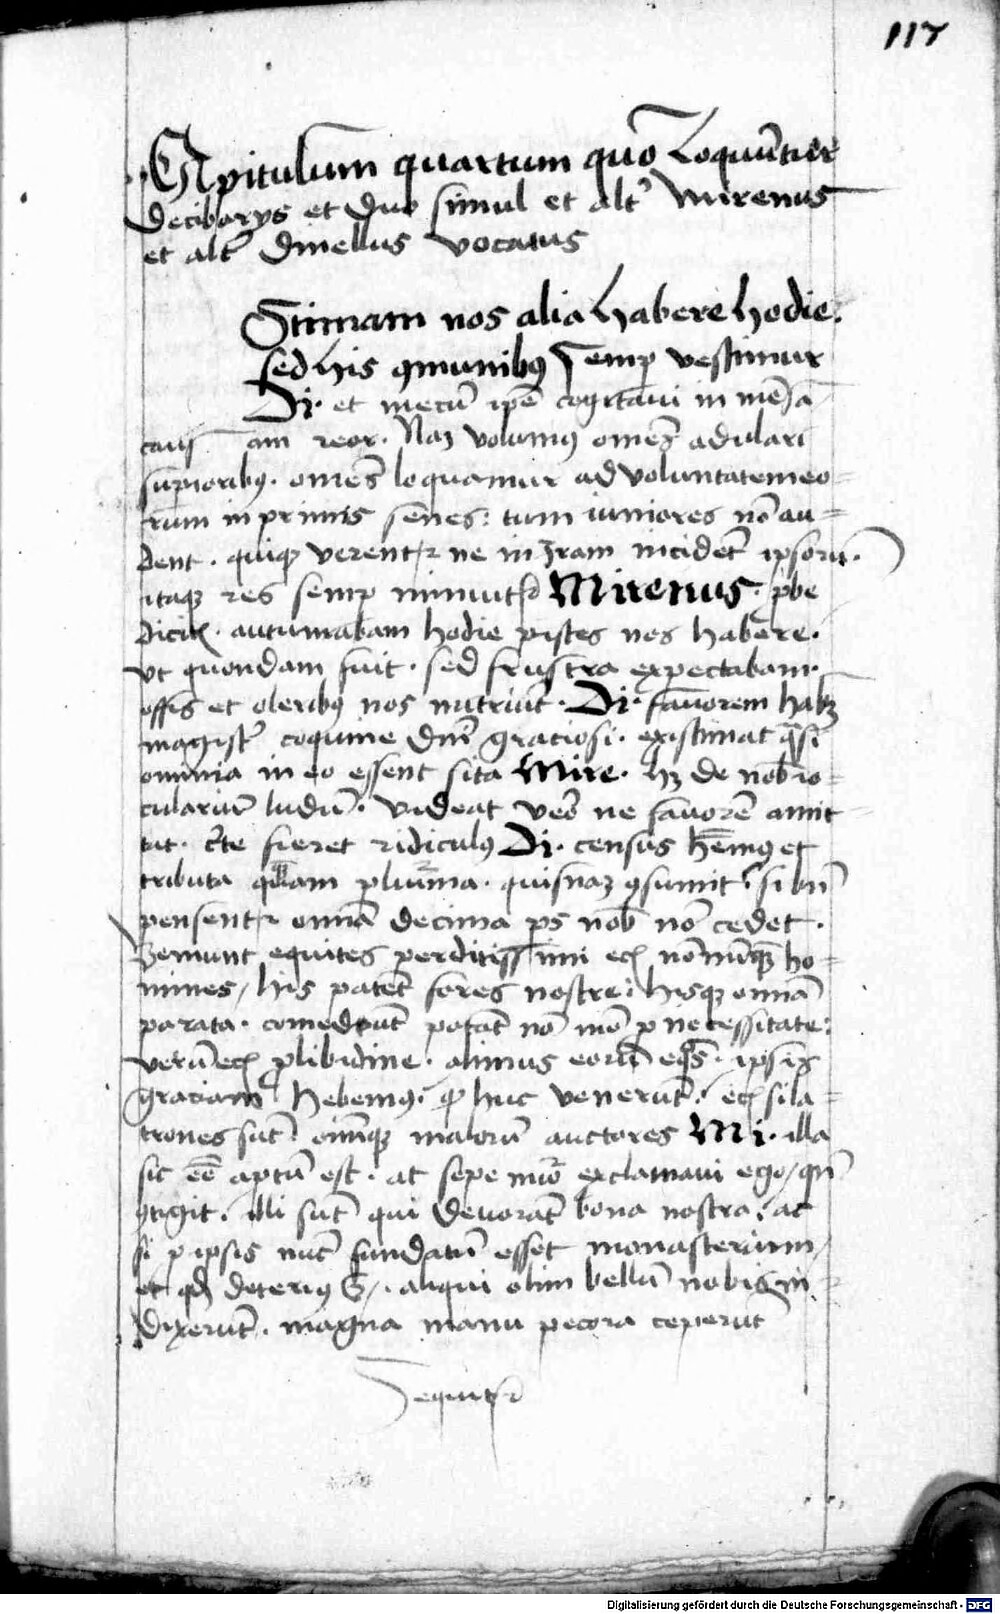 117
Capitulum quartum quō Loquūtur
de cibarys et duo simul et alt' Mirenus
et alt' dinellus vocatus
Stimam nos alia habere hodie.
sed his 9munibꝰ semp vestimur
Di. et mecū ipē cogitavi in mēsa
am reor. Naꝫ volumꝰ omēs adulari
supioribꝰ. omēs loquamur ad voluntatem eo=
rum in primis senes: tum iuniores nō au=
dent. quiqꝫ verentr ne in Iram incidēt ipsorū.
itaqꝫ res semp minuitr Mirenus. pbe
dicis. autumabam hodie pisces nos habere.
vt quondam fuit. sed frustra expectabam.
offis et oleribꝰ nos nutriūt. Di. favorem habꝫ
magist' coquine dnī gratiosi. existimat qsi
omnia in eo essent sita Mire. hꝫ de nob io=
cularium ludū. videat vero ne favorē amit=
tat. c'te fieret ridiculꝰ Di. census hēmꝰ et
tributa quam plurima. quisnaꝫ 9sumit? si bn̄
pensentr omnia decima ps nob nō cedet.
Veniunt equites perditissimi etc nōnūqꝫ ho=
mines, his patēt fores nostre: hisqꝫ omnia
parata. comedūt potāt nō mō p necessitate:
verū etc p libidine. alimus eorū eqs. ipsis
gratiam hebemꝰ. qp huc venerūt. etc si la=
trones sūt. omniūqꝫ malorū auctores Mi. illa
sic eē aptū est. at sepe mrō exclamavi ego, qn̄
9tigit. illi sūt qui devorāt bona nostra. ac
si p ipsis nūc fundatū esset monasterium,
et qd deteriꝰ aliqui olim bellū nobis in=
dixerūt. magna manu pecora ceperūt
Sequitr
Digitalisierung gefördert durch die Deutsche Forschungsgemeinschaft - DFG